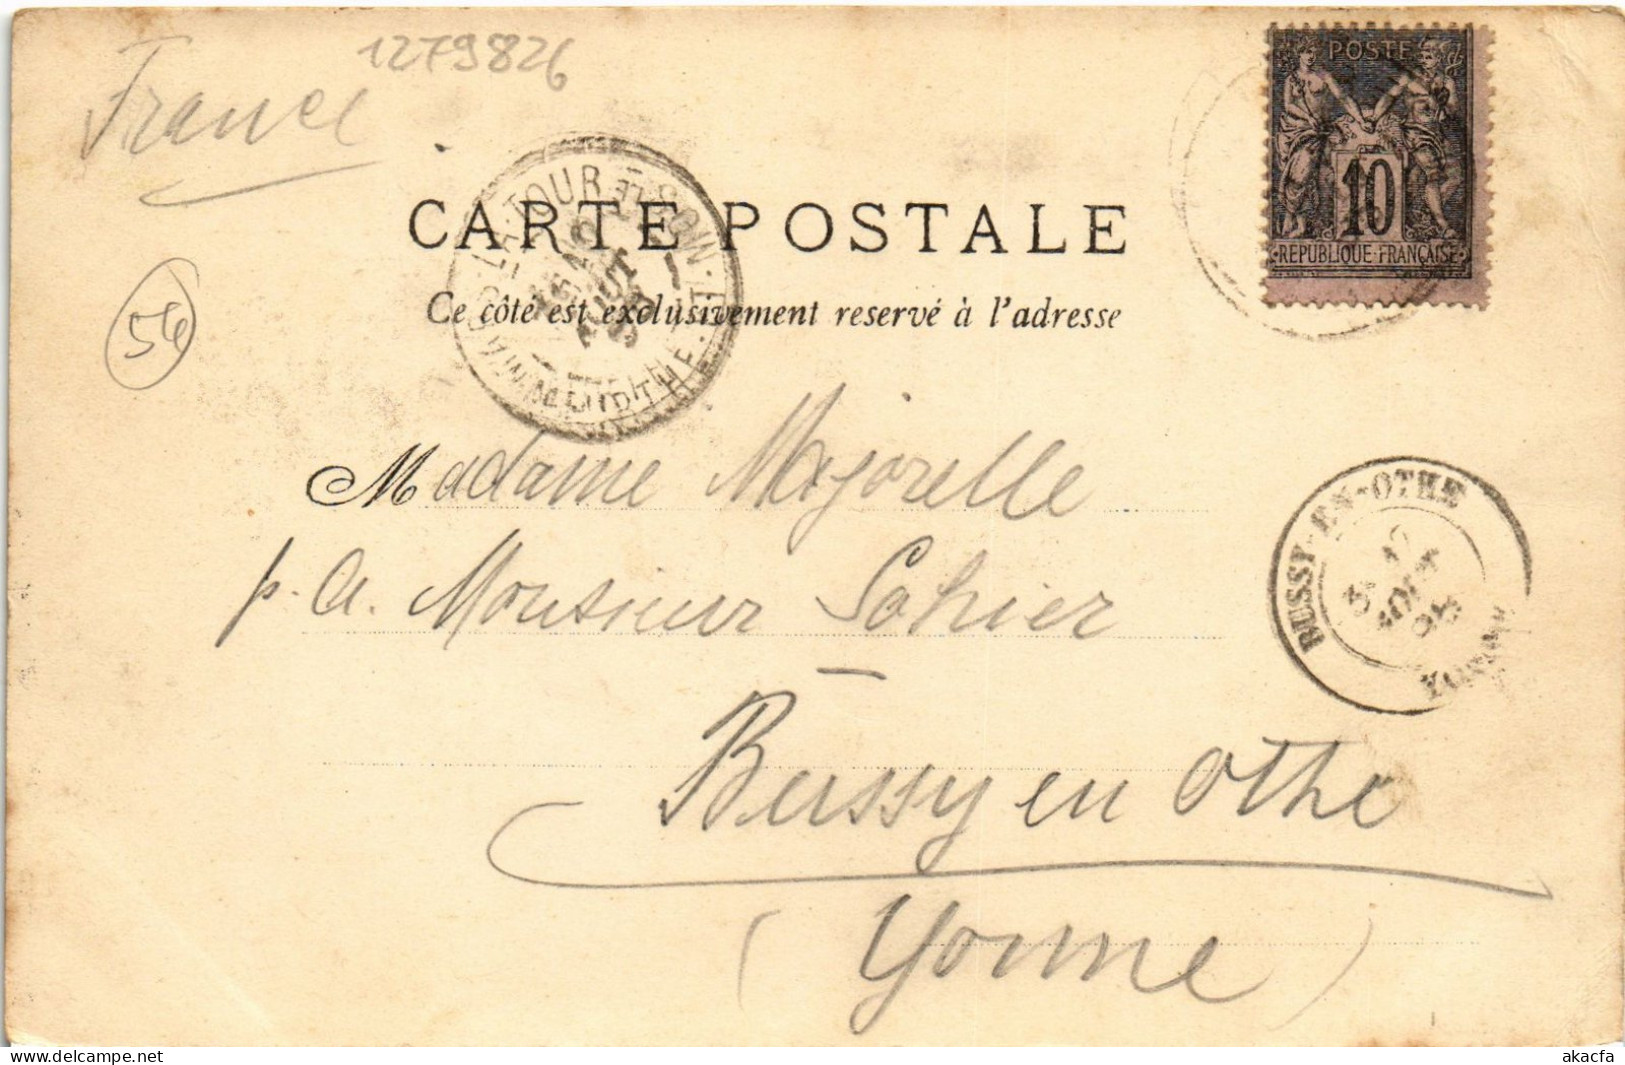 1279826
France
POSTE
10
REPUBLIQUE FRANÇAISE
CARTE POSTALE
Ce côté est exclusivement reservé à l'adresse
56
Madame Majorelle
p. a. Monsieur Sohier
BUSSY-EN-OTHE
YONNE
Bussy en Othe
(Yonne)
akacfa